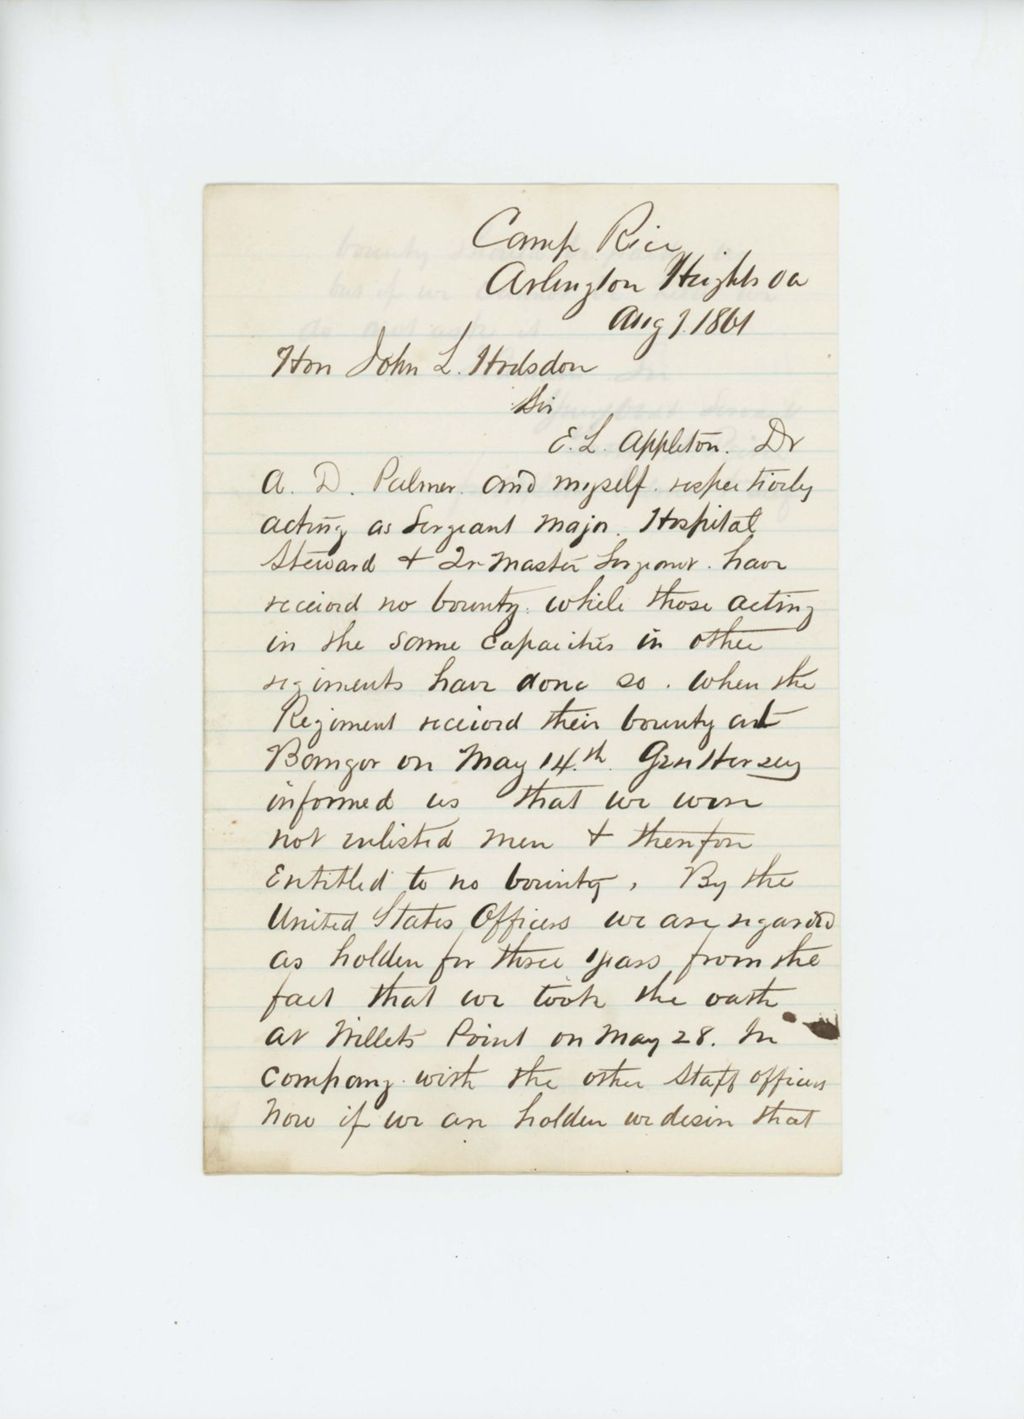 Camp Rice
Arlington Heights Va
Aug 7. 1861
Hon John L. Hodsdon
Sir
E. L. Appleton. Dr
A. D. Palmer. and myself. respectively
acting as Sergeant Major. Hospital
Steward & Qr Master Sergeant. have
received no bounty. while those acting
in the same capacities in other
regiments have done so. When the
Regiment received their bounty at
Bangor on May 14.th Gen Hersey
informed us that we were
not enlisted men & therefore
Entitled to no bounty, By the
United States Officers we are regarded
as holden for three years from the
fact that we took the oath
at Willets Point on May 28. In
Company. with the other Staff officers
Now if we are holden we desire that